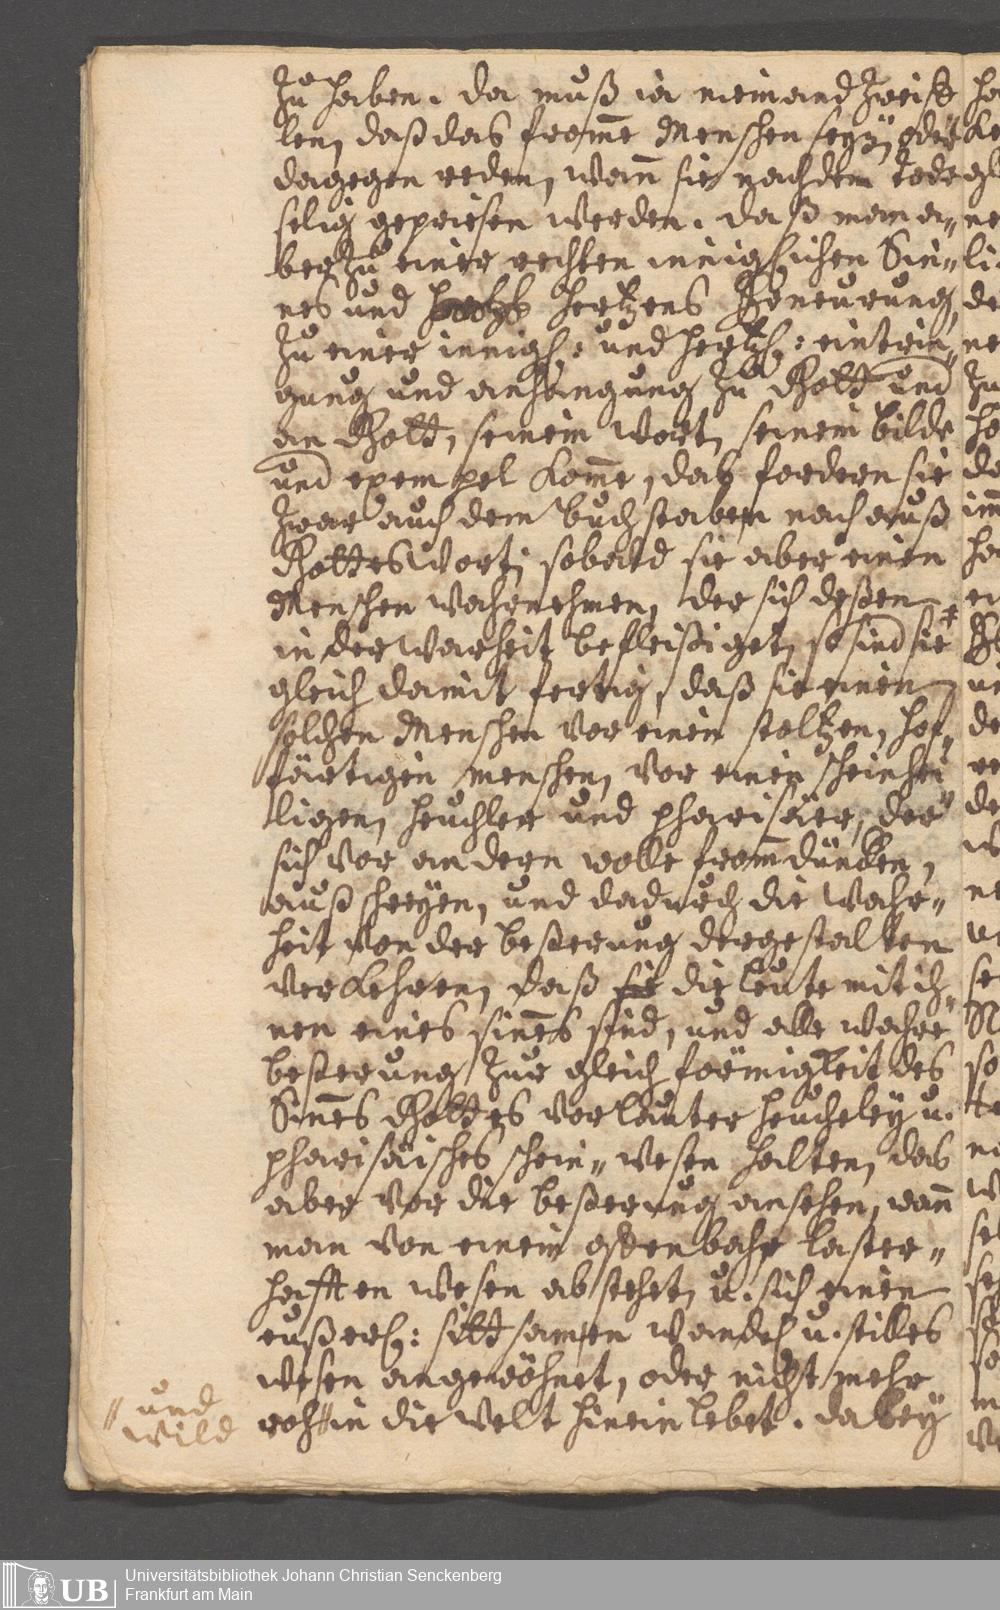 zu haben. da muß ia niemand zweiffe
len, daß das fromme Menschen seÿn, oder
dagegen reden, wann sie nach dem Tode
selig gepriesen werden. daß man a„
ber zu einer rechten innigl​ichen Sin„
nes und hertzens Erneurung,
zu einer innigl: und hertzl: eintrin„
gung und anhangung zu Gott und
an Gott, seinem Wort, seinem bilde
und exempel komme, das fordern sie
zwar auch dem buchstaben nach auß
Gottes Wort; sobald sie aber einen
Menschen wahrnehmen, der sich deßen
in der Warheit befleißiget, so sind sie
gleich damit fertig, daß sie einen
solchen Menschen vor einen stoltzen, hof„
färtigen menschen, vor einen scheinhei
ligen, heuchler und pharisäer, der
sich vor andern wolle fromm düncken,
auß schreÿen, und dadurch die Wahr„
heit von der beßerung dergestalten
verkehren, daß sie die leute mit ih„
nen eines sinnes sind, und alle wahre
beßerung zur gleichförmigkeit des
Sinnes Gottes vor lauter heucheleÿ u.
pharisäisches schein„wesen halten, das
aber vor die beßerung ansehen, wann
man von einem offenbahr laster„
hafften wesen abstehet, u. sich einen
eußerl: sittsamen wandel u. stilles
wesen angewöhnet, oder nicht mehr
roh in die Welt hinein lebet. dabeÿ
〃 und
wild
UB
Universitätsbibliothek Johann Christian Senckenberg
Frankfurt am Main